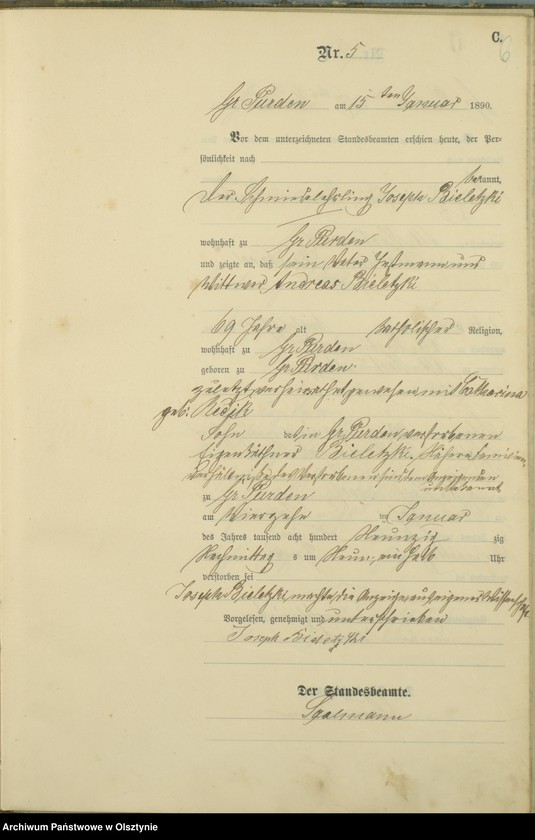 C.
6
Nr. 5
Gr Purden am 15 ten Januar 1890.
Vor dem unterzeichneten Standesbeamten erschien heute, der Per-
sönlichkeit nach
bekannt,
der Schmiedelehrling Joseph Bieletzki
wohnhaft zu Gr Purden
und zeigte an, daß sein Vater und
Wittwer Andreas Bieletzki
69 Jahre alt katholischer Religion,
wohnhaft zu Gr Purden
geboren zu Gr Purden
zuletzt verheirathet gewesen mit Catharina
geb.
Sohn des in Gr Purden verstorbenen
Eigenkäthners Bieletzki. Nähere Familien
Verhältnisse des Verstorbenen sind dem Anzeigenden
unbekannt
zu Gr Purden
am Vierzehn ten Januar
des Jahres tausend acht hundert Neunzig zig
Nachmittag s um Neun, ein halb Uhr
verstorben sei
Joseph Bieletzki machte die Anzeige aus eigener Wissenschaft
Vorgelesen, genehmigt und unterschrieben
Joseph Bieletzki
Der Standesbeamte.
Archiwum Państwowe w Olsztynie